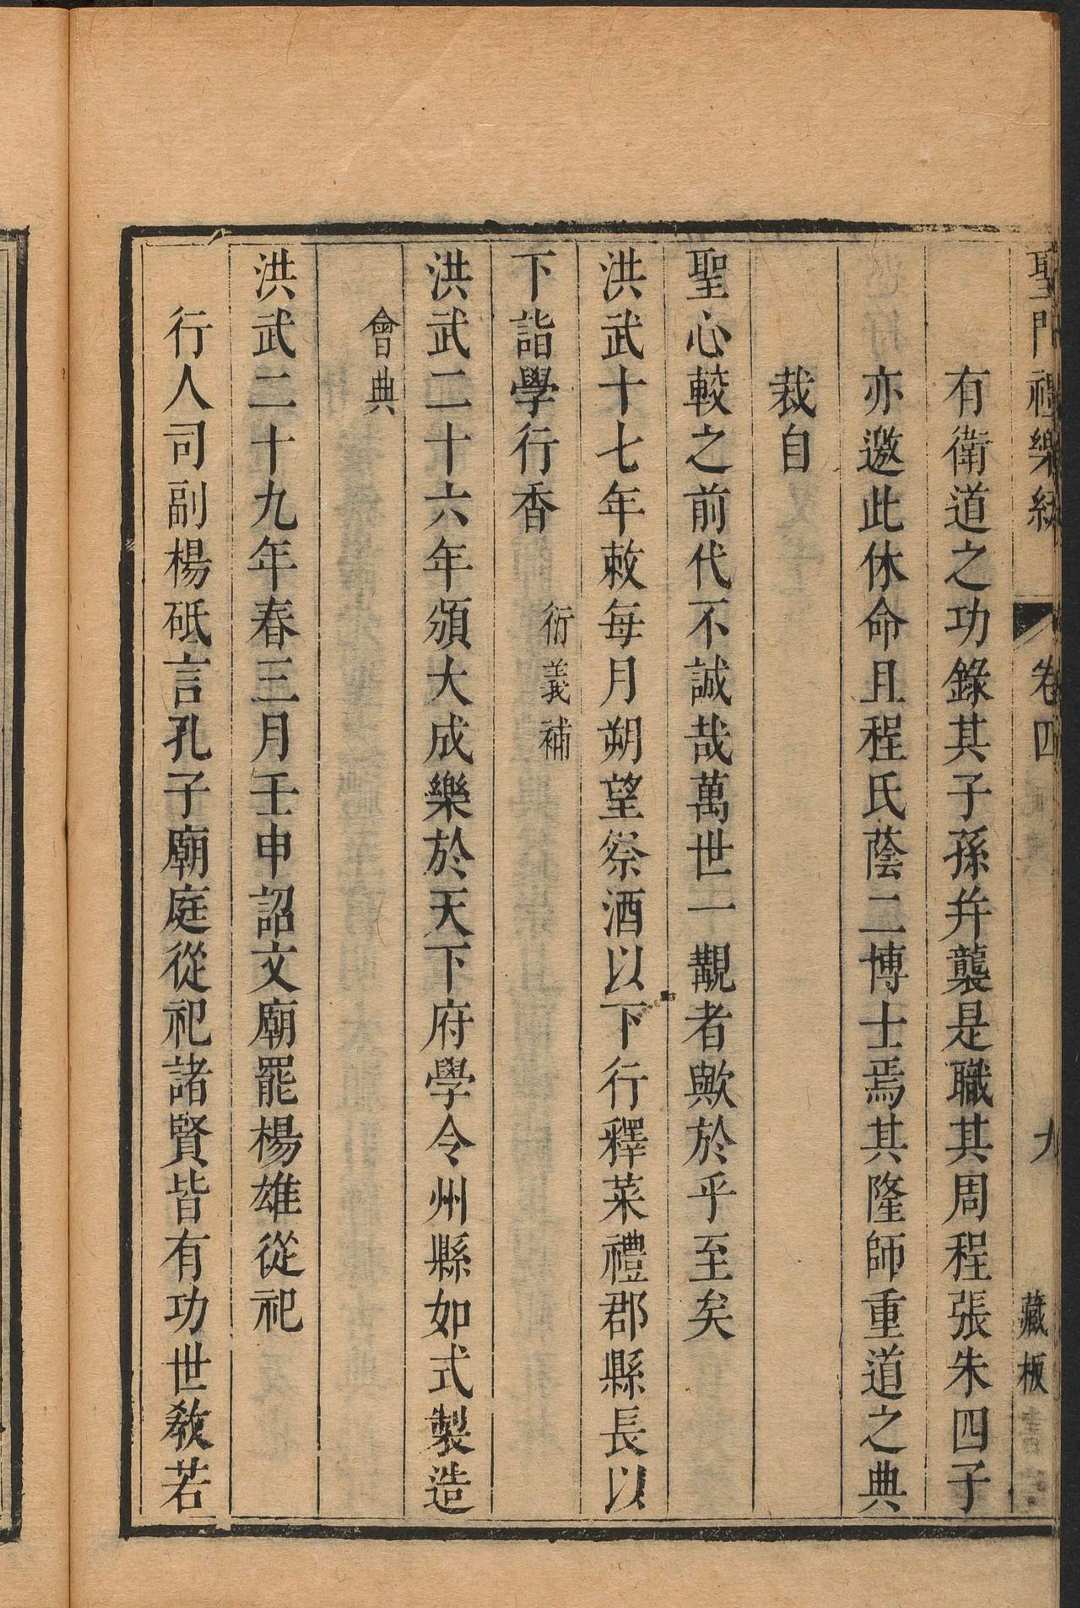 聖門禮樂統
卷四
九
藏板
有衛道之功錄其子孫并襲是職其周程張朱四子
亦邀此休命且程氏蔭二博士焉其隆師重道之典
裁自
聖心較之前代不誠哉萬世一觀者歟於乎至矣
洪武十七年敕每月朔望祭酒以下行釋菜禮郡縣長以
下詣學行香
衍義補
洪武二十六年頒大成樂於天下府學令州縣如式製造
會典
洪武二十九年春三月壬申詔文廟罷楊雄從祀
行人司副楊砥言孔子廟庭從祀諸賢皆有功世教若